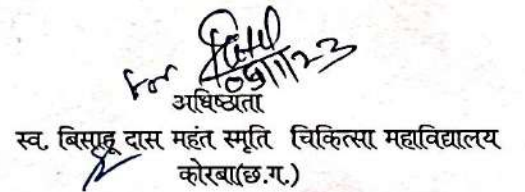 For
09/11/23
अधिष्ठाता
स्व. बिसाहू दास महंत स्मृति चिकित्सा महाविद्यालय
कोरबा(छ.ग.)